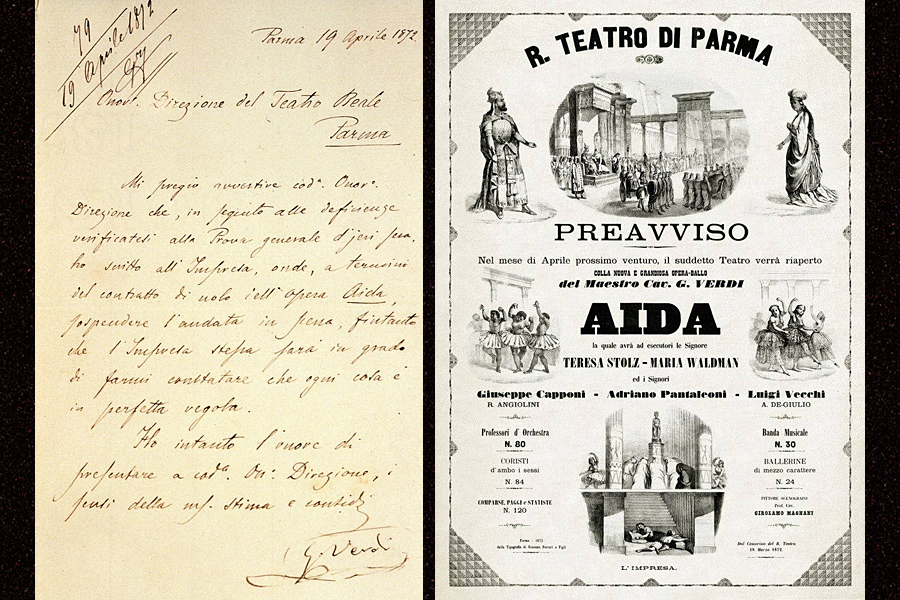 79
19 Aprile 1872
Parma 19 Aprile 1872
Onor. Direzione del Teatro Reale
Parma
Mi pregio avvertire cod.ª Onor.ª
Direzione che, in seguito alle deficienze
verificatesi alla Prova generale d'jeri sera,
ho scritto all'Impresa, onde, a termini
del contratto di nolo dell'opera Aida,
sospendere l'andata in scena, fintanto
che l'Impresa stessa sarà in grado
di farmi constatare che ogni cosa è
in perfetta regola.
Ho intanto l'onore di
presentare a cod.ª On. Direzione, i
sensi della mia stima e
G. Verdi
R. TEATRO DI PARMA
PREAVVISO
Nel mese di Aprile prossimo venturo, il suddetto Teatro verrà riaperto
COLLA NUOVA E GRANDIOSA OPERA-BALLO
del Maestro Cav. G. VERDI
AIDA
la quale avrà ad esecutori le Signore
TERESA STOLZ - MARIA WALDMAN
ed i Signori
Giuseppe Capponi - Adriano Pantaleoni - Luigi Vecchi
R. ANGIOLINI
A. DE-GIULIO
Professori d'Orchestra
N. 80
CORISTI
d'ambo i sessi
N. 84
COMPARSE, PAGGI e STATISTE
N. 120
Parma - 1872
dalla Tipografia di Giacomo Ferrari e Figli
Banda Musicale
N. 30
BALLERINE
di mezzo carattere
N. 24
PITTORE SCENOGRAFO
Prof. Cav.
GIROLAMO MAGNANI
Dal Camerino del R. Teatro
16 Marzo 1872.
L'IMPRESA.